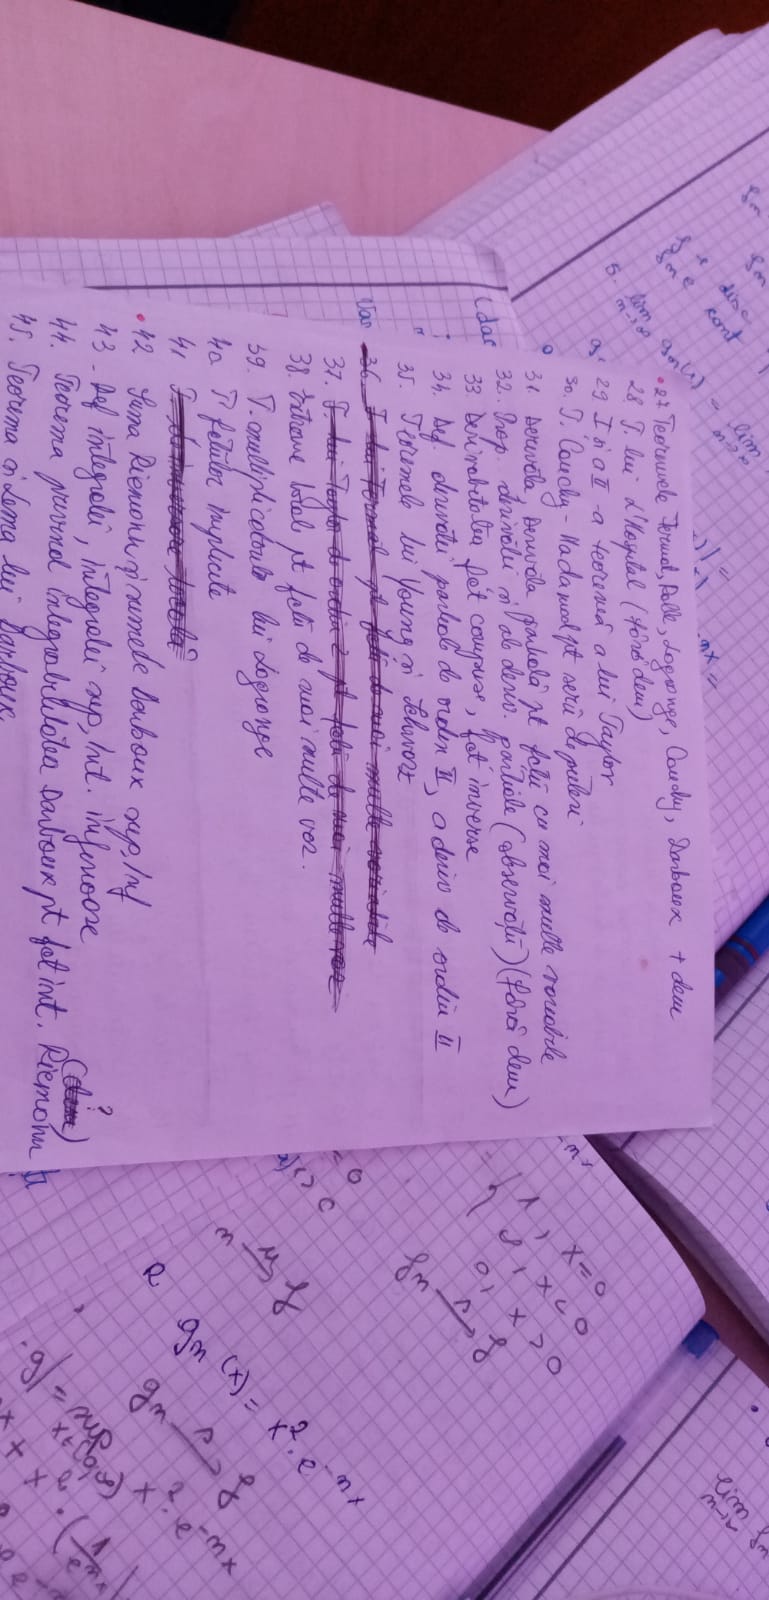 27 Teoremele Fermat, Rolle, Lagrange, Cauchy, Darboux + dem
28. T. lui L'Hospital (fără dem)
29 I și a II-a teoremă a lui Taylor
30. T. Cauchy-Hadamad pt serii de puteri
31. Derivata, Derivata parțială pt fcții cu mai multe variabile
32. Prop. derivatei și ale deriv. parțiale (observații) (fără dem)
33. Derivabilitatea fct compuse, fct inverse
34. Def. derivatei parțiale de ordin II, a deriv de ordin II
35. Teoremele lui Young și Schwarz
36. T lui Fermat pt fcții de mai multe variabile
37. T. lui Taylor de ordin 2 pt fcții de mai multe var
38. Extreme locale pt fcții de mai multe var.
39. T. multiplicatorilor lui Lagrange
40 T fcțiilor implicite
41 T. de inversare locală
42 Suma Riemann și sumele Darboux sup, inf
43. Def integralei, integralei sup, int. inferioare
?
(dem)
44. Teorema privind integrabilitatea Darboux pt fct int. Riemann
45. Teorema și Lema lui Darboux
5. lim gn(x) = lim
(dac
Var
1, x=0
, x<0
0, x>0
fn s→ f
gn(x) = x². e^-nx
gn s→ g